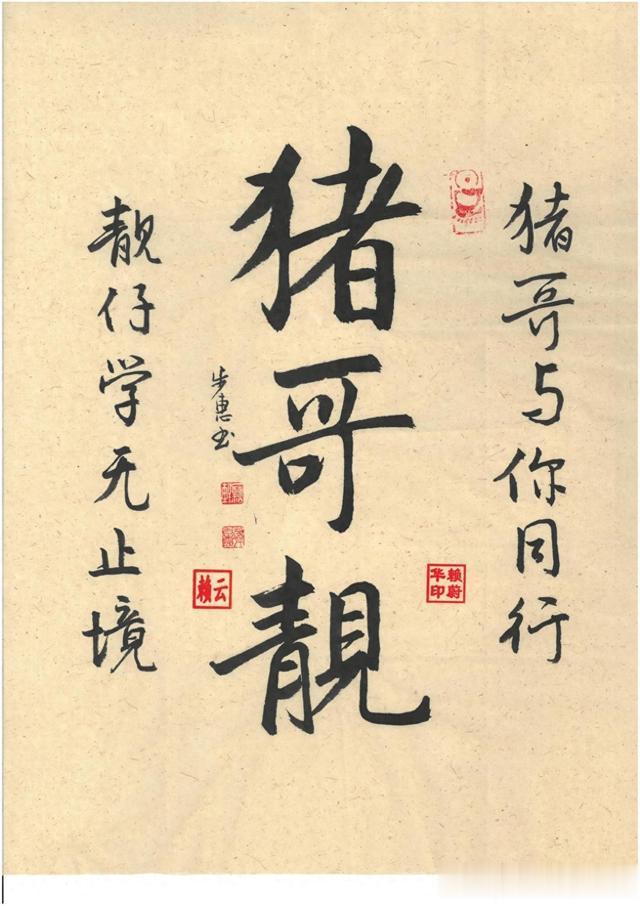 猪哥与你同行
猪哥靓
靓仔学无止境
步惠书
赖蔚华印
云赖